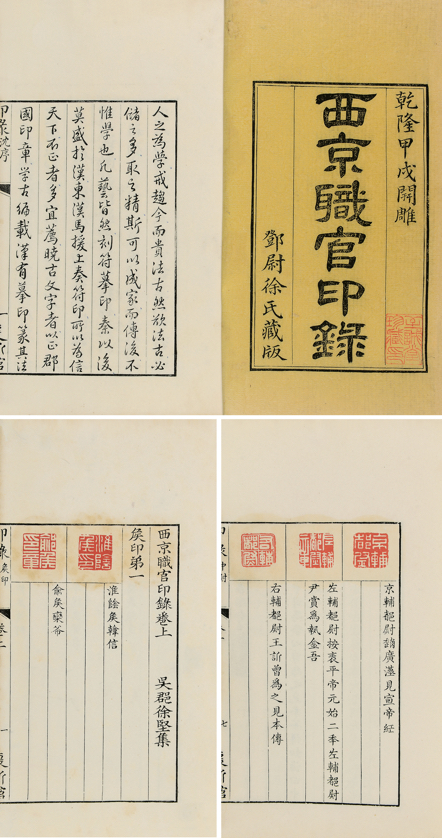 乾隆甲戌開雕
西京職官印錄
鄧尉徐氏藏版
人之為學戒趨今而貴法古然欲法古必
儲之多取之精斯可以成家而傳後不
惟學也凡藝皆然刻符摹印秦以後
莫盛於漢東漢馬援上奏符印所以為信
天下不正者多宜薦曉古文字者以正郡
國印章學古編載漢有摹印篆其法
印彔沈序
西京職官印錄卷上
吳郡徐堅集
矦印第一
淮陰矦韓信
俞矦欒布
京輔都尉趙廣漢見宣帝紀
左輔都尉按表平帝元始二年左輔都尉
尹賞為執金吾
右輔都尉王訢曾為之見本傳
七